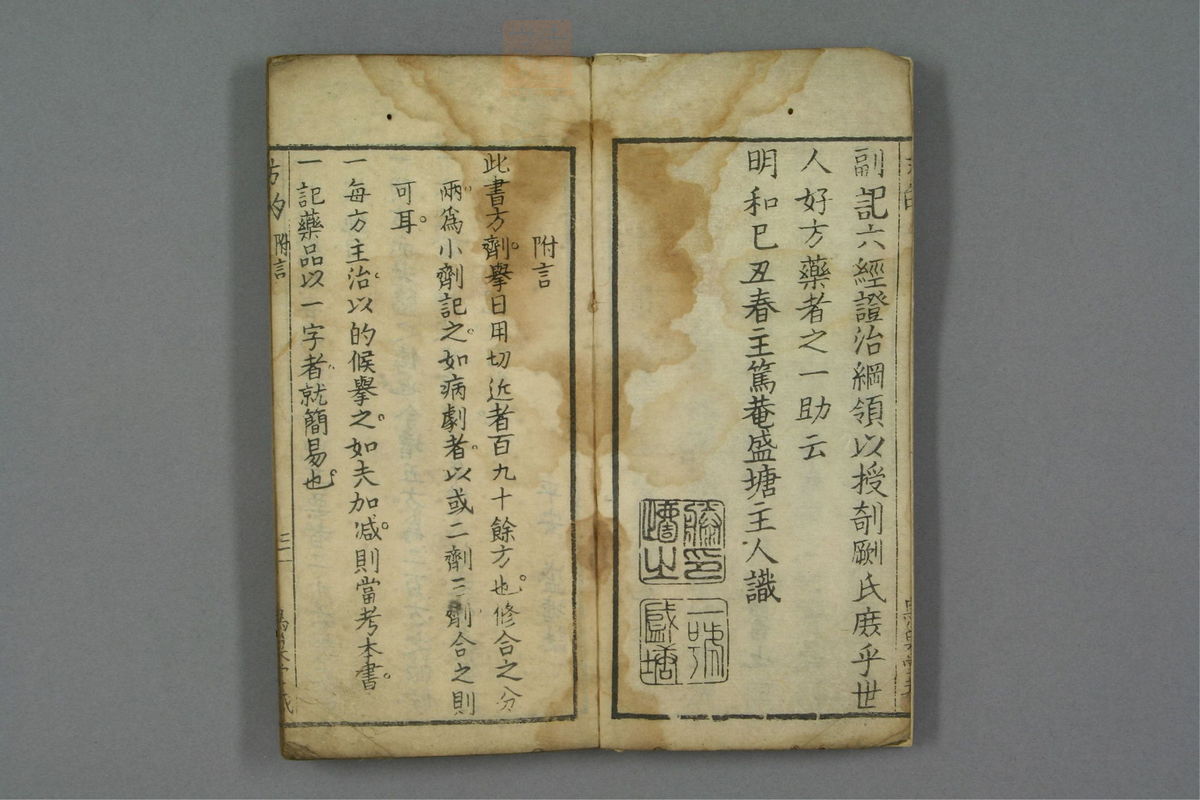 副記六經證治綱領以授剞劂氏庶乎世
人好方藥者之一助云
明和己丑春主篤菴盛塘主人識
一號
盛塘
附言
此書方劑擧日用切近者百九十餘方也修合之分
兩爲小劑記之如病劇者以或二劑三劑合之則
可耳
一每方主治以的候擧之如夫加减則當考本書
一記藥品以一字者就簡易也
方的 附言 三